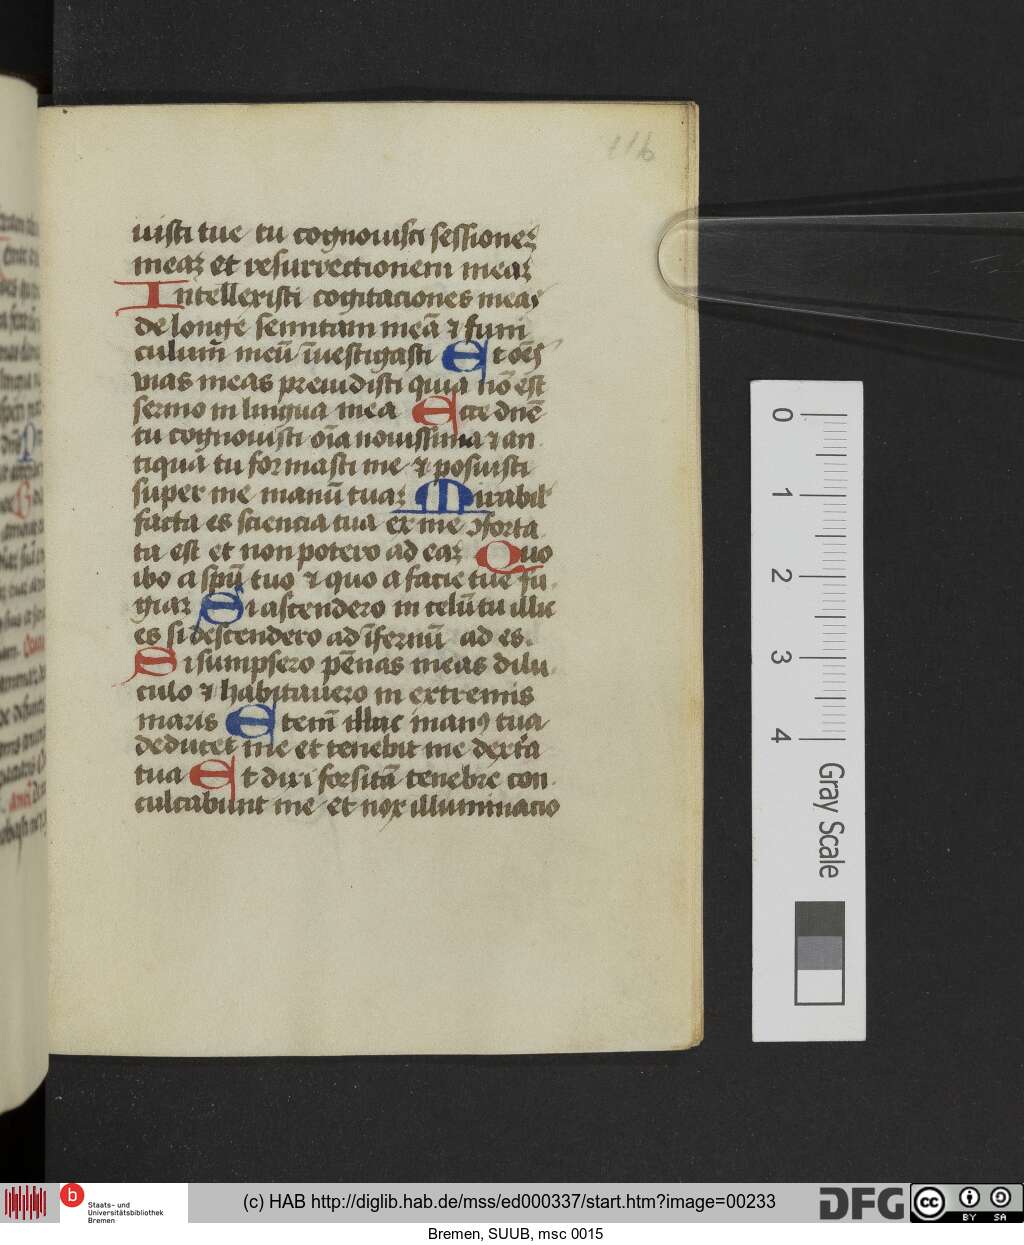 116
uisti tue tu cognouisti sessioneꝫ
meaꝫ et resurrectionem meaꝫ
Intellexisti cogitaciones meas
de longe semitam meā ⁊ funi
culum̄ meū īuestigasti Et oēs
vias meas preuidisti quia nō est
sermo in lingua mea Ecce dn̄e
tu cognouisti oīa nouissima ⁊ an
tiqua tu formasti me ⁊ posuisti
super me manū tuaꝫ Mirabil'
facta es sciencia tua ex me ꝯforta
ta est et non potero ad eaꝫ Quo
ibo a spū tuo ⁊ quo a facie tue fu
giaꝫ Si ascendero in celū tu illic
es si descendero ad īfernū ad es.
Si sumpsero pēnas meas dilu
culo ⁊ habitauero in extremis
maris Etem̄ illuc manꝰ tua
deducet me et tenebit me dext̓a
tua Et dixi forsitā tenebre con
culcabunt me et nox illuminacio
0
1
2
3
4
Gray Scale
b
Staats- und
Universitätsbibliothek
Bremen
(c) HAB http://diglib.hab.de/mss/ed000337/start.htm?image=00233
DFG
cc
BY SA
Bremen, SUUB, msc 0015